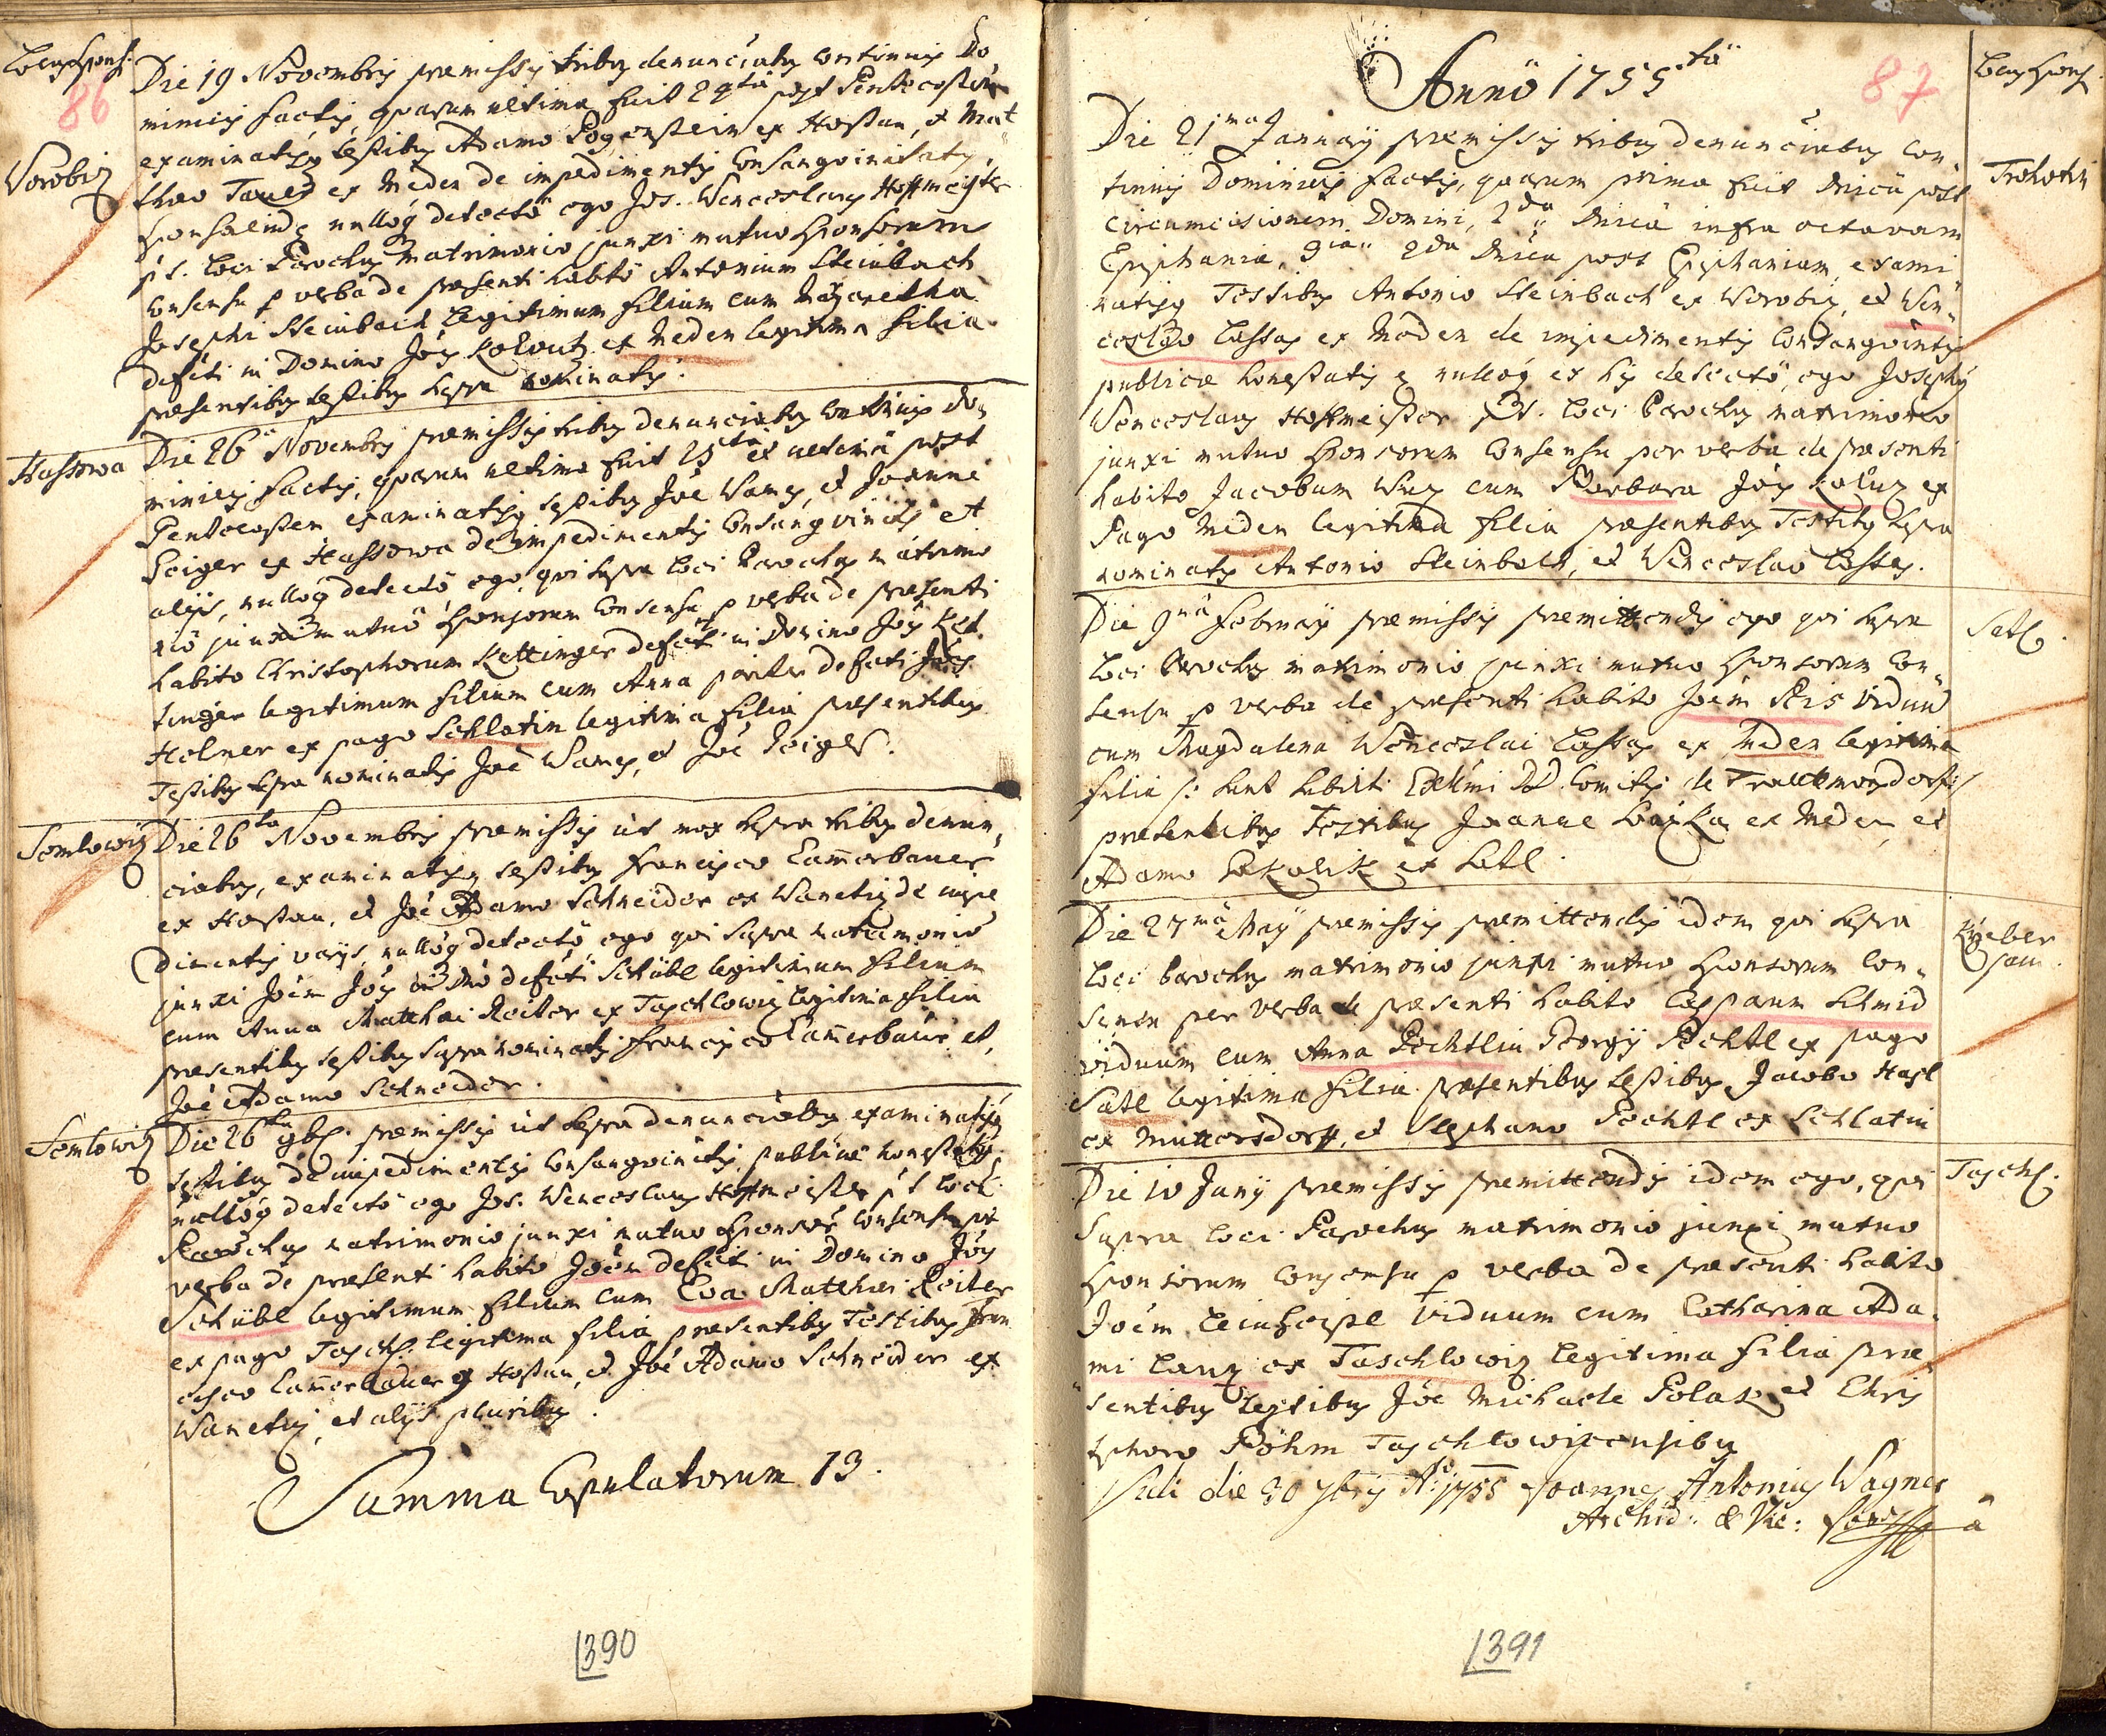 Locus Spons.
86
Die 19 Novembris præmissis tribus denunciatibus continuis Do
minicis factis, quarum ultima fuit 24ta post Pentecosten
Worobiz
examinatisq testibus Adamo Pogenstein ex Hostau, et Mat
theo Taued ex Meden de impedimentis Consangvinitatis,
Sponsalium nulloq detectö ego Jos. Wenceslaus Hoffmeister
p t. loci Parochus Matrimonio junxi mutuo Sponsorum
consensu p verba de præsenti habitö Antonium Steinbach
Josephi Steinbach legitimum filium cum Margaretha
defũti in Domino Jois Kolbutz ex Meden legitima filia
præsentibus testibus supra nominatis.
Hassowa
Die 26ta Novembris præmissis tribus denunciatibus continuis do
minicis factis, quarum ultima fuit 25ta et ultima post
Pentecosten examinatisq testibus Jöe Wamus, et Joanne
Geiger ex Hassowa de impedimentis Consangvinitis et
alijs, nulloq detectö, ego, qui supra loci Parochus matrimo
niö junxi mutuö Sponsorum Consensu p verba de præsenti
habito Christophorum Kettinger defũti in Domino Jöis Ket
tinger legitimum filium cum Anna pariter defũti Jöis
Holner ex pago Schlatin legitima filia præsentibus
Testibus supra nominatis Jöe Wamus, et Jöe Geiger.
Semlowiz
Die 26ta Novembris præmissis üt mox supra tribus denun,
ciatibus, examinatisq testibus Francisco Cam̃erbauer
ex Hostau, et Jöe Adamo Schneider ex Wanetiz de impe
dimentis varijs, nulloq detectö ego qui supra matrimonio
junxi Jöem Jöis in Dno defũti Schübl legitimum filium
cum Anna Matthæi Reiter ex Taschlowiz legitima filia
præsentibus testibus supra nominatis Francisco Cam̃erbauer et
Jöe Adamo Schneider.
Semlowiz
Die 26ta 9bris præmissis üt supra denunciatibus examinatisq
testibus de impedimentis Consangvinitis, publicæ honestatis
nulloq detectö ego Jos. Wenceslaus Hoffmeister p t loci
Parochus matrimonio junxi mutuo Sponsorũ consensu per
verba de præsenti habito Joëm defũti in Domino Jöis
Schübl legitimum filium cum Eva Matthæi Reiter
ex pago Taschl. legitima filia præsentibus Testibus Fran
cisco Cam̃erbauer ex Hostau, et Jöe Adamo Schneider ex
Wanetiz, et alijs pluribus.
Summa Copulatorum 13.
390
Annö 1755.tö
87
Locus Spons.
Die 21ma Januarij præmissis tribus denunciatibus con
Trohotin
tinuis Dominicis factis, quarum prima fuit Dnica post
Circumcisionem Domini, 2da Dnica infra octavam
Epiphaniæ, 3tia 2da Dnica post Epiphaniam, exami
natisq Testibus Antonio Steinbach ex Worobiz, et Wen
ceslao Cassas ex Möden de impedimentis Consangvintis
publicæ honestatis nulloq ex his detectö, ego Josephus
Wenceslaus Hoffmeister p t. loci Parochus matrimonio
junxi mutuo Sponsorum Consensu per verba de præsenti
habito Jacobum Wuz cum Barbara Jöis Kaluz ex
Pago Meden legitima filia præsentibus Testibus supra
nominatis Antonio Steinbach, et Wenceslao Cassas.
Satl.
Die 9nä Februarij præmissis præmittendis ego qui supra
loci Parochus matrimonio junxi mutuo Sponsorum Con
sensu p verba de præsenti habito Joëm Reis viduũ
cum Magdalena Wenceslai Cassas ex Meden legitima
filia /: sunt subditi Exel̃mi DD Comitis de Trautmansdorf :/
præsentibus Testibus Joanne Woiska ex Meden, et
Adamo Pokolik ex Satl.
Die 27mä Maij præmissis præmittendis idem qui supra
loci Parochus matrimonio junxi mutuo Sponsorum Con
sensu per verba de præsenti habito Casparum Schmid
viduum cum Anna Pechtlin Georgij Pechtl ex pago
Satl legitima filia præsentibus testibus Jacobo Hasl
ex Muttersdorff, et Stephano Pechtl ex Schlatin
Taschl.
Die 10 Junij præmissis præmittendis idem ego, qui
supra loci Parochus matrimonio junxi mutuo
Sponsorum consensu p verba de præsenti habito
Joëm Leinheipl viduum cum Catharina Ada
mi Lanz ex Taschlowiz legitima filia præ
sentibus testibus Jöe Michaele Polak et Chris
tphoro Böhm Taschlowizensibus
Vidi die 30 7bris Aö 1755 Joannes Antonius Wagner
Archid: & Vic:
391